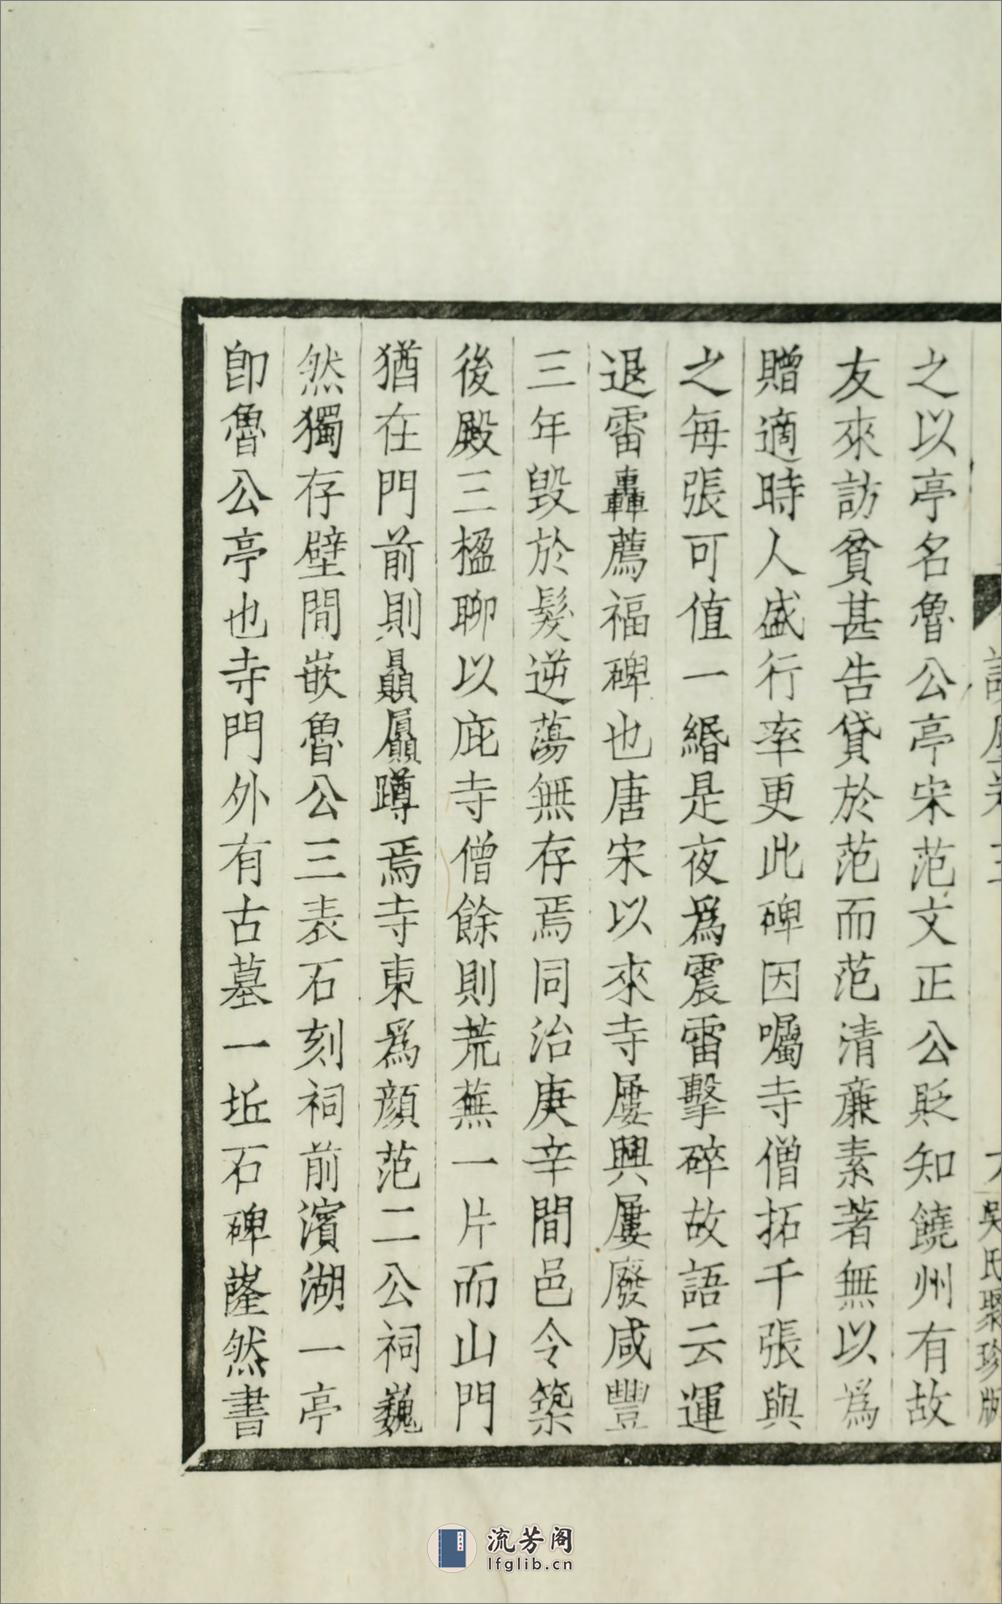 之以亭名魯公亭宋范文正公貶知饒州有故
友來訪貧甚告貸於范而范清廉素著無以為
贈適時人盛行率更此碑因囑寺僧拓千張與
之每張可值一緡是夜爲震雷擊碎故語云運
退雷轟薦福碑也唐宋以來寺屢興屢廢咸豐
三年毀於髮逆蕩無存焉同治庚辛間邑令築
後殿三楹聊以庇寺僧餘則荒蕪一片而山門
猶在門前則贔屭蹲焉寺東爲顏范二公祠巍
然獨存壁間嵌魯公三表石刻祠前濱湖一亭
卽魯公亭也寺門外有古墓一坵石碑窿然書
吳氏聚珍版
流芳阁
lfglib.cn